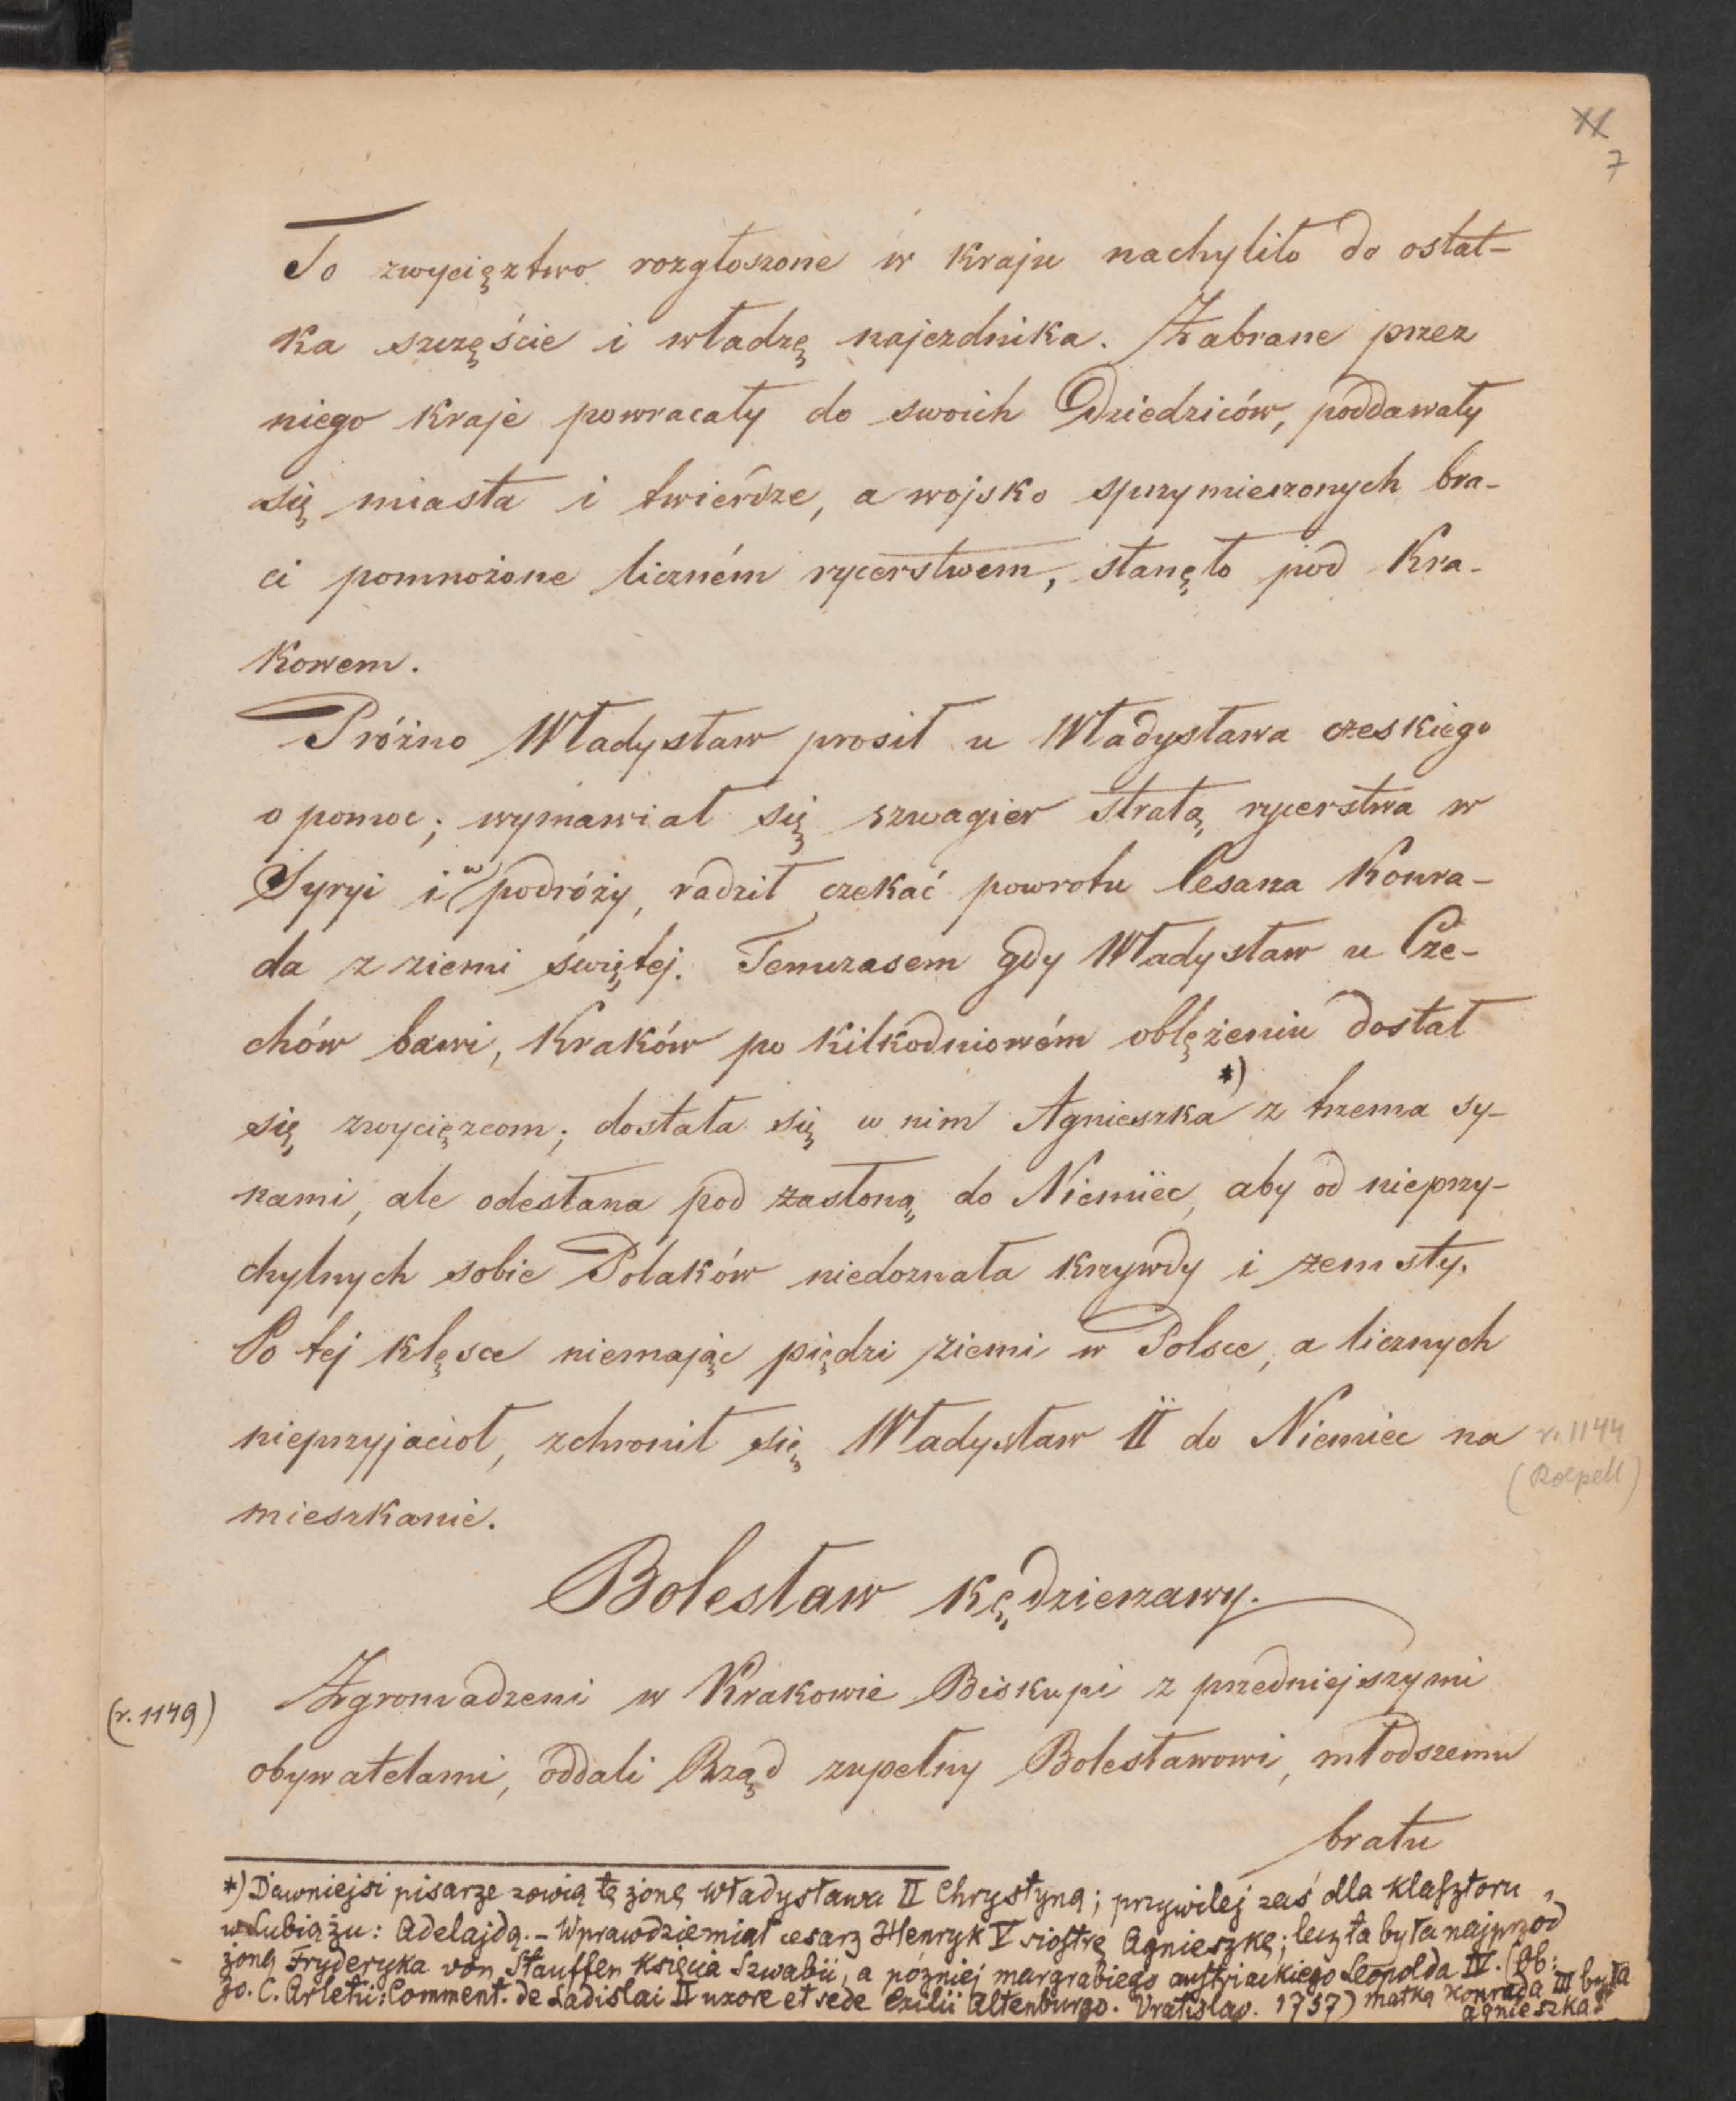 7
To zwycięztwo rozgłoszone w kraju nachyliło do ostat-
ka szczęście i władzę najezdnika. Zabrane przez
niego kraje powracały do swoich Dziedziców, poddawały
się miasta i twierdze, a wojsko sprzymierzonych bra-
ci pomnożone liczném rycerstwem, stanęło pod Kra-
kowem.
Próżno Władysław prosił u Władysława czeskiego
o pomoc; wymawiał się szwagier stratą rycerstwa w
Syryi i w podróży, radził czekać powrotu Cesarza Konra-
da z ziemi świętej. Temczasem gdy Władysław u Cze-
chów bawi, Kraków po kilkodniowém oblężeniu dostał
się zwycięzcom; dostała się w nim Agnieszka *) z trzema sy-
nami, ale odesłana pod zasłoną do Niemiec, aby od nieprzy-
chylnych sobie Polaków niedoznała krzywdy i zemsty.
Po tej klęsce niemając piędzi ziemi w Polsce, a licznych
nieprzyjaciół, zchronił się Władysław II do Niemiec na
r. 1144
(Roepell)
mieszkanie.
Bolesław Kędzierzawy.
(r. 1149)
Zgromadzeni w Krakowie Biskupi z przedniejszymi
obywatelami, oddali Rząd zupełny Bolesławowi, młodszemu
bratu
*) Dawniejsi pisarze zowią tę żonę Władysława II Chrystyną; przywilej zaś dla klasztoru
w Lubiążu: Adelajdą. – Wprawdzie miał cesarz Henryk V siostrę Agnieszkę; lecz ta była najprzod
żoną Fryderyka von Stauffen Księcia Szwabii, a później margrabiego austriackiego Leopolda IV. (Ob:
Jo. C. Arletii: Comment. de Ladislai II uxore et sede Exilii Altenburgo. Vratislav. 1757) matką Konrada III była
Agnieszka.